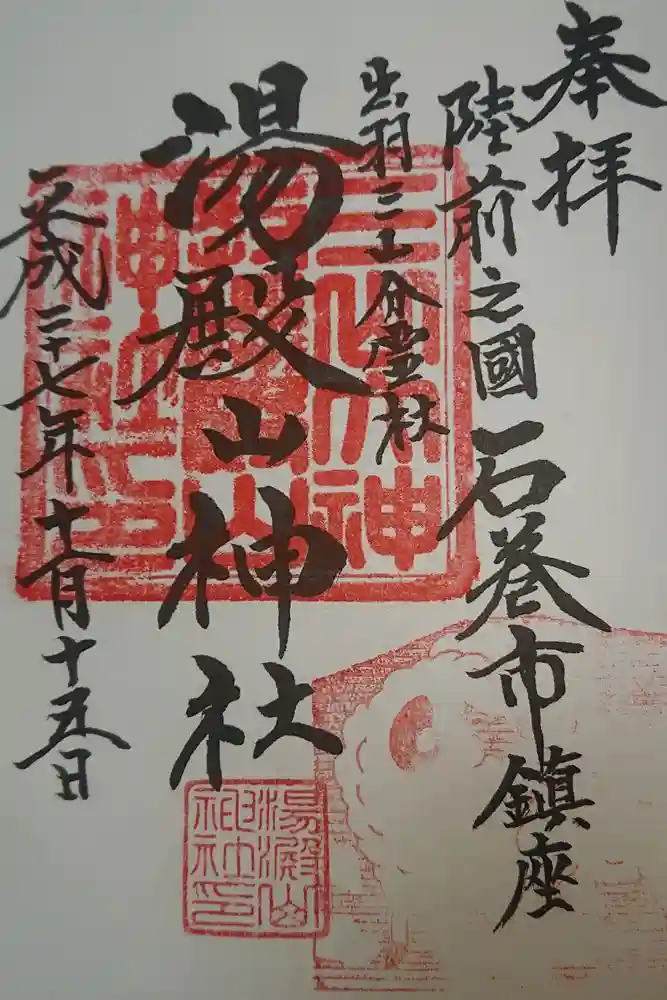 奉拝
陸前之國石巻市鎮座
出羽三山分霊社
湯殿山神社
平成二十七年十一月十五日
湯殿山
神社印